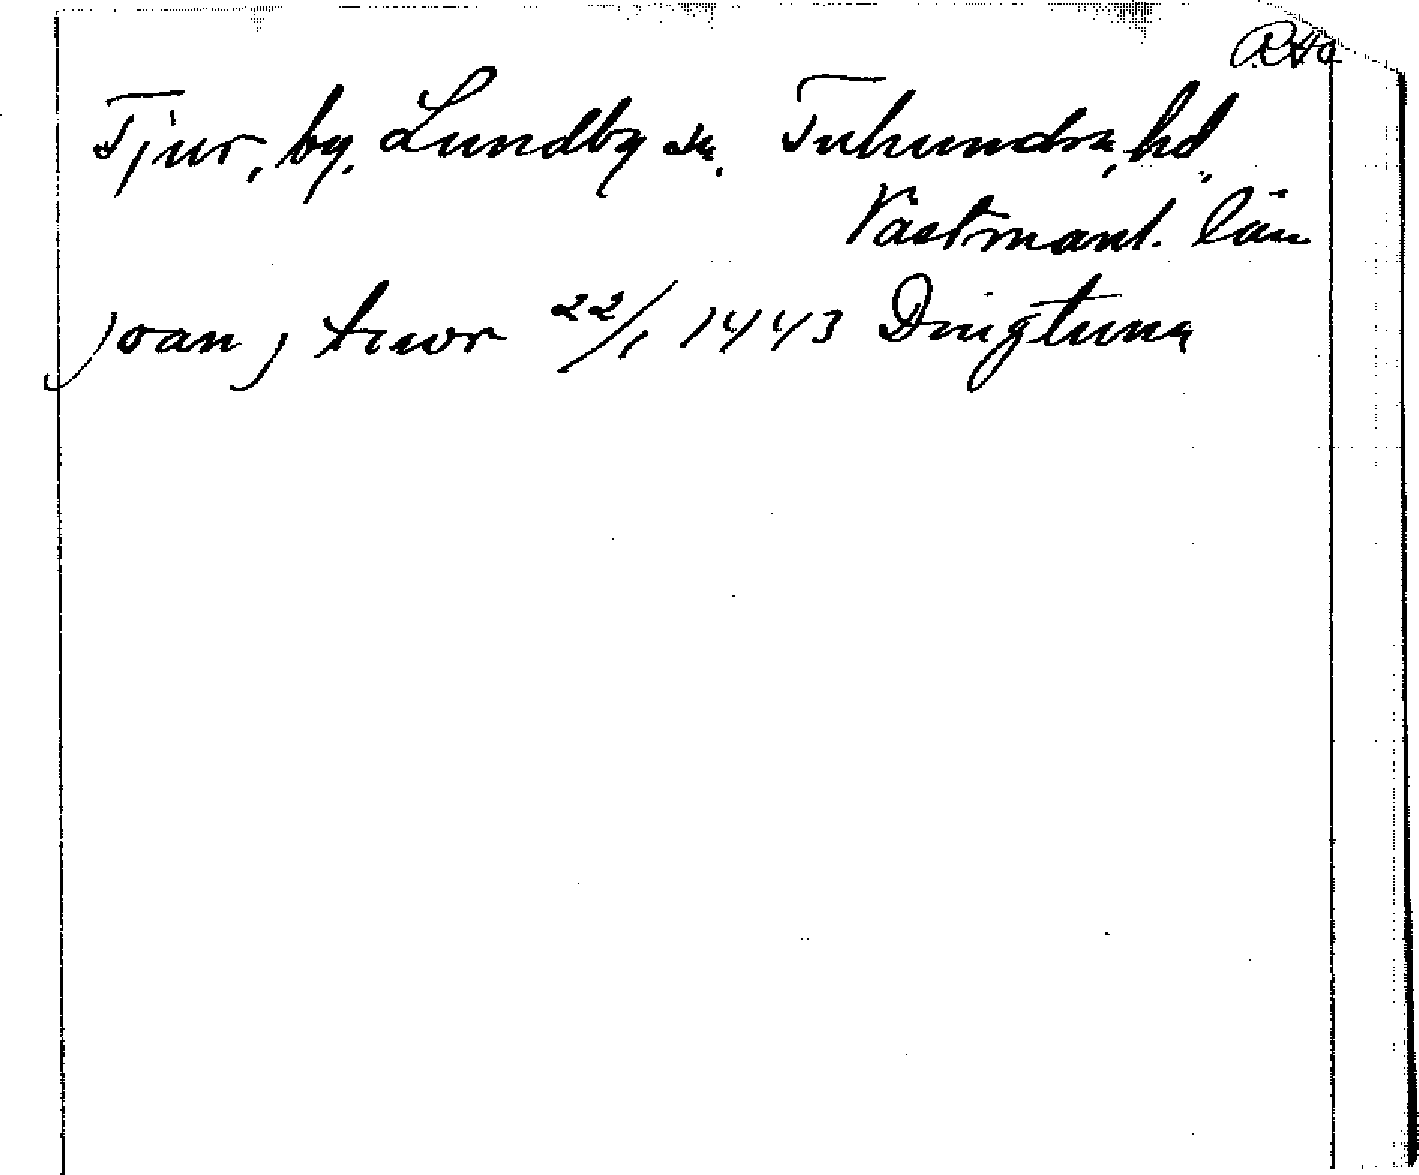 RAÖ
Tjur, by, Lundby sn. Tuhundra, hd,
Västmanl. län
joan j tiwr 22/1 1443 Dingtuna